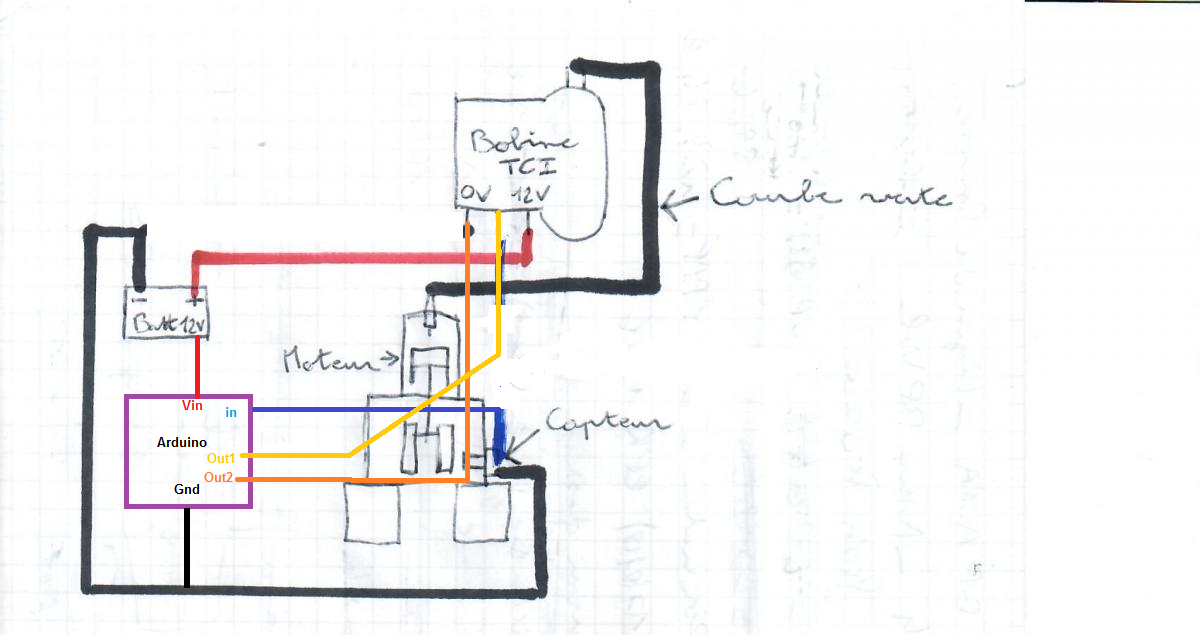 Bobine
TCI
0V 12V
- +
Batt 12V
Moteur
Capteur
Vin
in
Arduino
Out1
Out2
Gnd